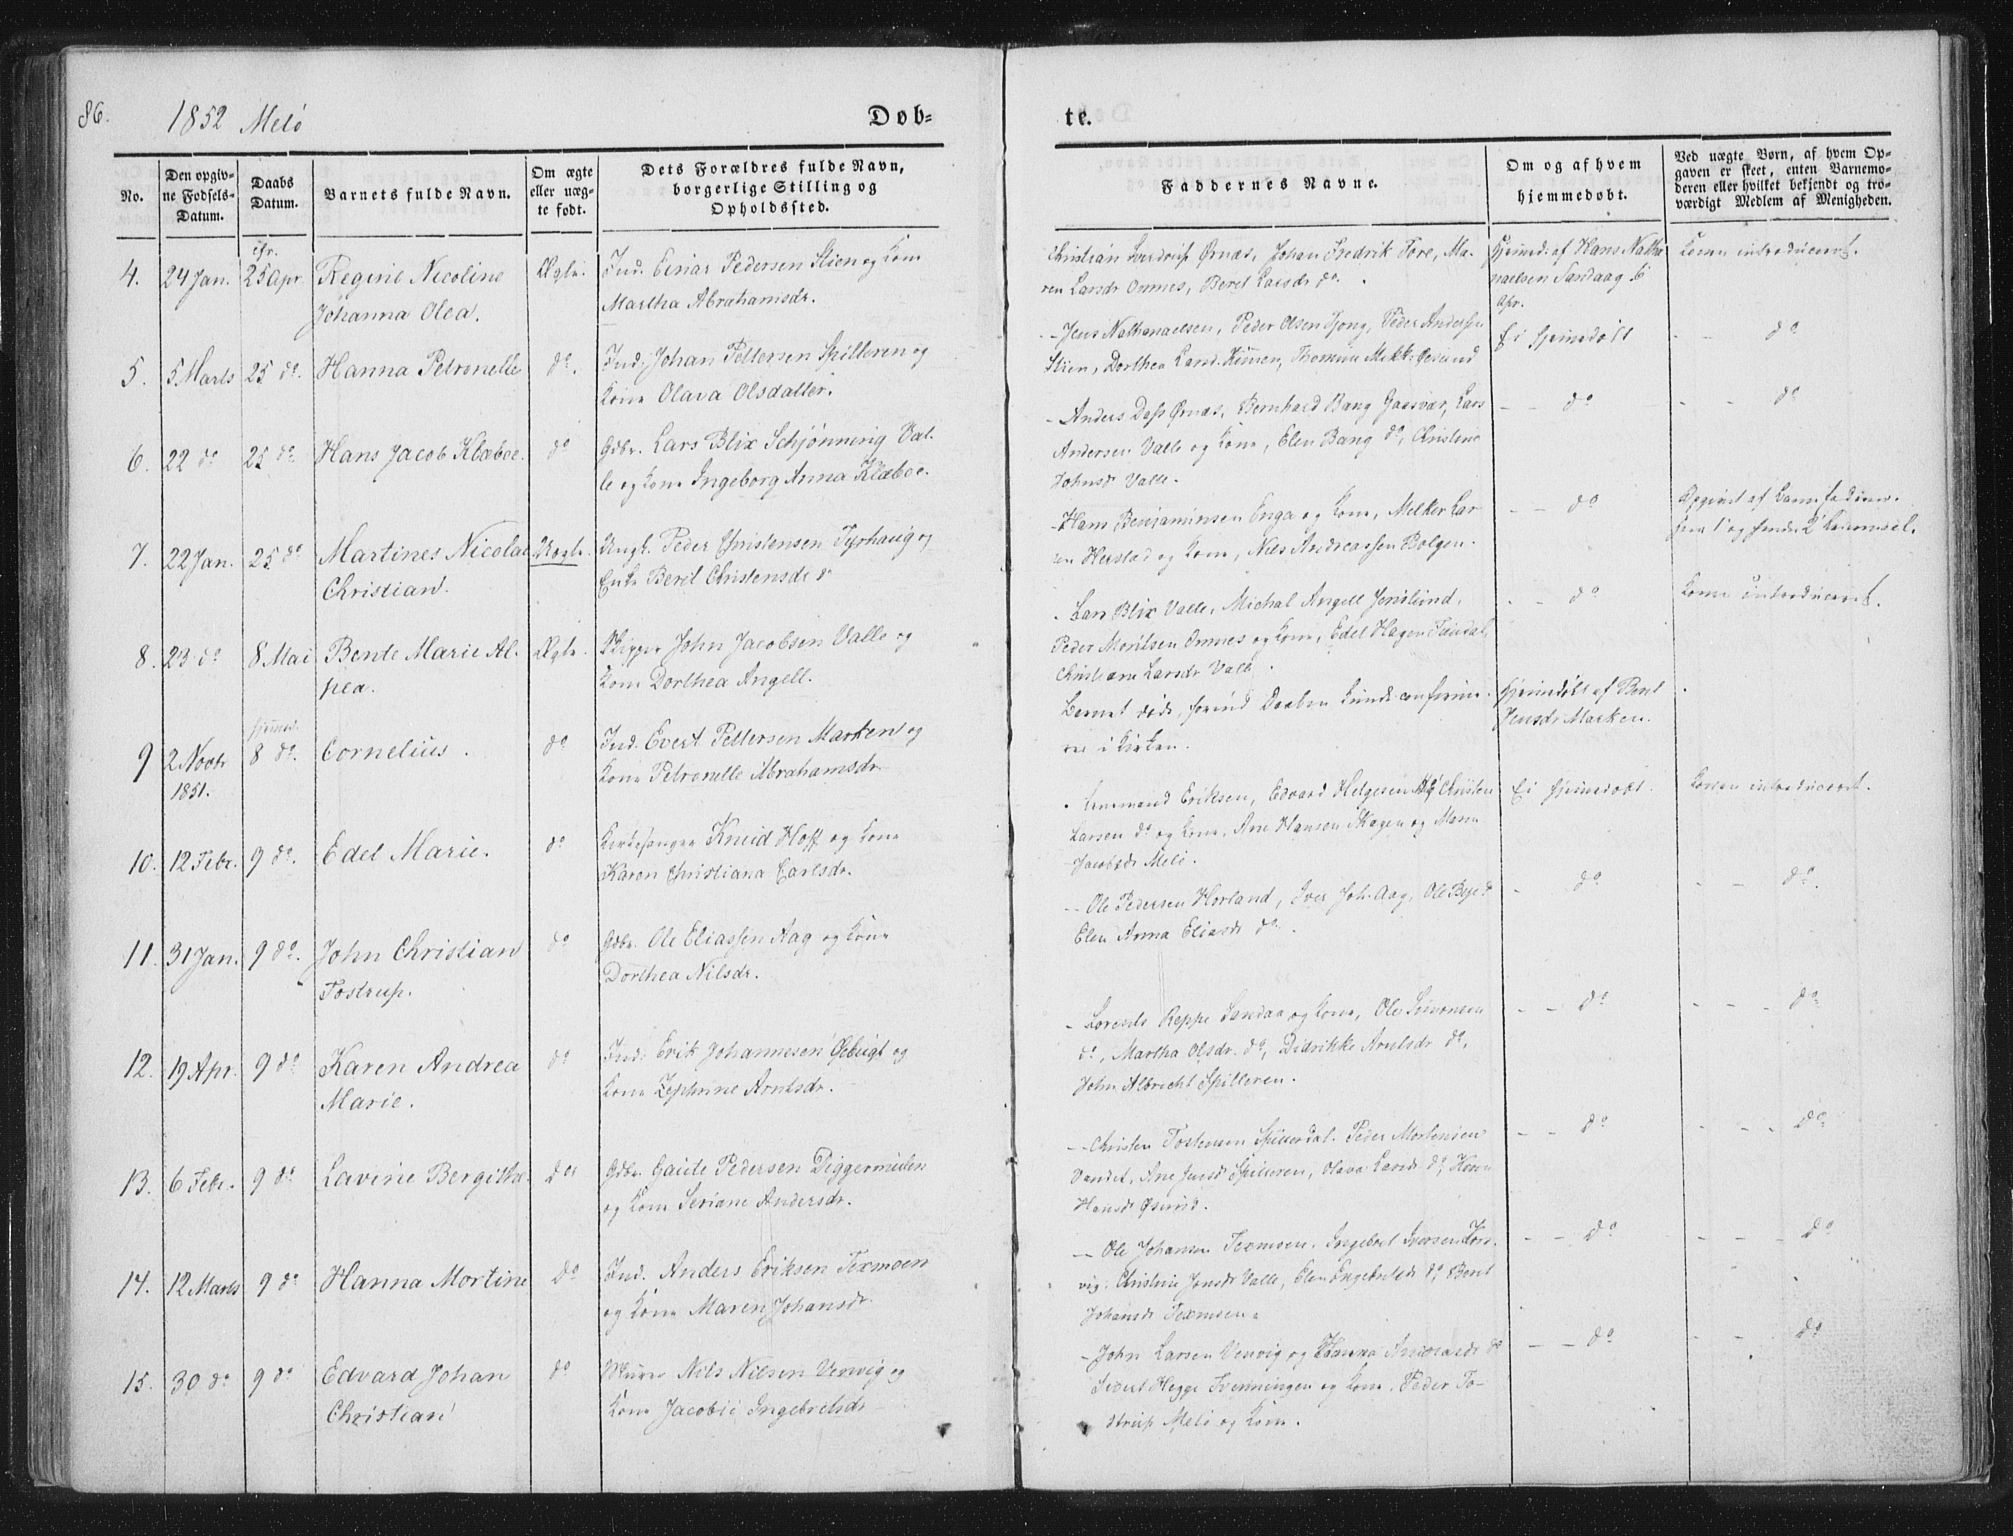 86.
1852 Melö
Döb=
te.
No.
Den opgiv-
ne Födsels-
Datum.
Daabs
Datum.
Barnets fulde Navn.
Om ægte
eller uæg-
te født.
Dets Forældres fulde Navn,
borgerlige Stilling og
Opholdssted.
Faddernes Navne.
Om og af hvem
hjemmedøbt.
Ved uægte Børn, af hvem Op-
gaven er skeet, enten Barnemo-
deren eller hvilket bekjendt og tro-
værdigt Medlem af Menigheden.
4. 24 Jan. 25 Apr Regine Nicoline Ægte. Ind. Einar Pedersen Stien og Kone
Johanna Olea. Martha Abrahamsdr.
Christian Sverdrup Ørnæs, Johan Fredrik Fore, Ma-
ren Larsdr Omnes, Beret Larsdr do.
Hjemd. af Hans Natha
naelsen Sandaag 6
Apr.
Konen introduceret.
5. 5 Marts 25 do. Hanna Petronelle do. Ind. Johan Pettersen Spilleren og
Kone Olava Olsdatter.
- Jens Nathanaelsen, Peder Olsen Tjong, Peder Andersen
Stien, Dorthea Kimen, Thomine
Ei hjemedöbt
- - do
6. 22 do 25 do. Hans Jacob Klæboe. do Gdbr. Lars Blix Schjönning Val-
le og Kone Ingeborg Anna Klæboe.
- Anders Dass Ørnæs, Bernhard Bang Gaasvær, Lars
Andersen Valle og Kone, Elen Bang do, Christine
Johnsdr Valle.
- - do
- - do
7. 22 Jan. 25 do Martines Nicolai Uægte. Ungk. Peder Christensen Tyrhaug og
Christian. Enke Berit Christensdr do
- Hans Benjaminsen Enga og Kone, Melker Lar-
sen Herstad og Kone, Nils Andreassen Bolgen.
- - do
Opgivet af
8. 23 do 8 Mai Bente Marie Al- Ægte. Skipper John Jacobsen Valle og
pea. Kone Dorthea Angell.
- Lars Blix Valle, Michal Angell
Peder Moritsen Omnes og Kone, Edel Hagen
Christiane Larsdr Valle.
- - do
Konen introduceret.
hjemd.
9 2 Novbr 8 do. Cornelius. do Ind. Evert Pettersen Marken og
1851. Kone Petronelle Abrahamsdr
Barnet döde, forind Daaben kunde confirme-
res i Kirken.
Hjemmdöbt af Beret
Jensdr Marken.
10. 12 Febr. 9 do. Edel Marie. do Kirkesanger Knud Hoff og Kone
Karen Christiana Carlsdr.
Eriksen, Edvard Helgesen Melö, Christen
Larsen do og Kone, Ane Hansen Skagen og Maren
Jacobsdr Melö.
Ei hjemedöbt.
Konen introduceret.
11. 31 Jan. 9 do. John Christian do Gdbr. Ole Eliassen Aag og Kone
Tostrup. Dorthea Nilsdr.
- Ole Pedersen Horland, Iver Joh. Aag, Ole
Elen Anna Eliasdr do.
- do
- - do.
12. 19 Apr. 9 do Karen Andrea do Ind. Erik Johannesen Øebugt og
Marie. Kone Zephrine Arntsdr.
- Lorents Reppe Sandaa og Kone, Ole Simonsen
do, Martha Olsdr. do, Didrikke Arntsdr do,
John Albrecht Spilleren.
- - do
- - do
13. 6 Febr. 9 do Lavine Bergitha. do Gdbr. Gaute Pedersen Diggermulen
og Kone Seriane Andersdr.
- Christen Tostensen Spillerdal. Peder Mortensen
Vandet, Ane Jensdr Spilleren, Olava Larsdr do,
Hansdr
- - do
- - - do
14. 12 Marts 9 do Hanna Mortine do Ind. Anders Eriksen Texmoen
og Kone Maren Johansdr
- Ole Johansen Texmoen, Ingebret Iversen
vig, Christine Jonsdr Valle, Elen Engebretsdr do, Beret
Johansdr Texmoen.
- - do
- - - do
15. 30 do 9 do Edvard Johan do Murer Nils Nilsen Venvig og
Christian Kone Jacobie Ingebretsdr
- John Larsen Venvig og Hanna Andreasdr do
Sivert Hegge Svenningen og Kone. Peder To-
strup Melö og Kone.
- - do
- - do